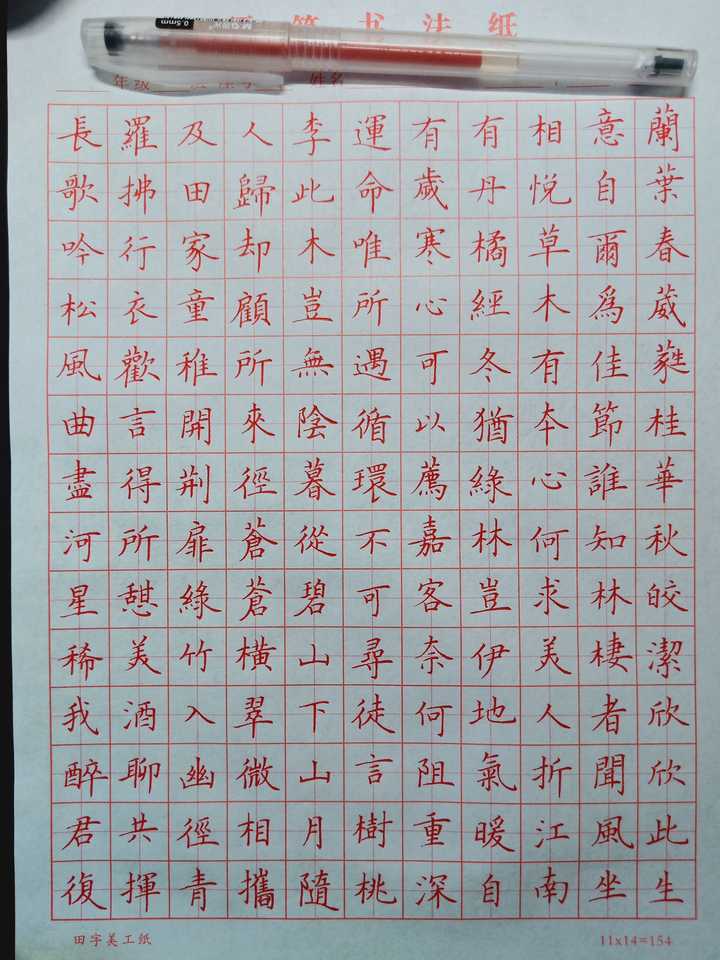 笔书法纸
年级 姓名
0.5mm
蘭葉春葳蕤桂華秋皎潔欣欣此生
意自爾爲佳節誰知林棲者聞風坐
相悅草木有本心何求美人折江南
有丹橘經冬猶綠林豈伊地氣暖自
有歲寒心可以薦嘉客奈何阻重深
運命唯所遇循環不可尋徒言樹桃
李此木豈無陰暮從碧山下山月隨
人歸却顧所來徑蒼蒼橫翠微相攜
及田家童稚開荆扉綠竹入幽徑青
羅拂行衣歡言得所憇美酒聊共揮
長歌吟松風曲盡河星稀我醉君復
田字美工纸
11x14=154